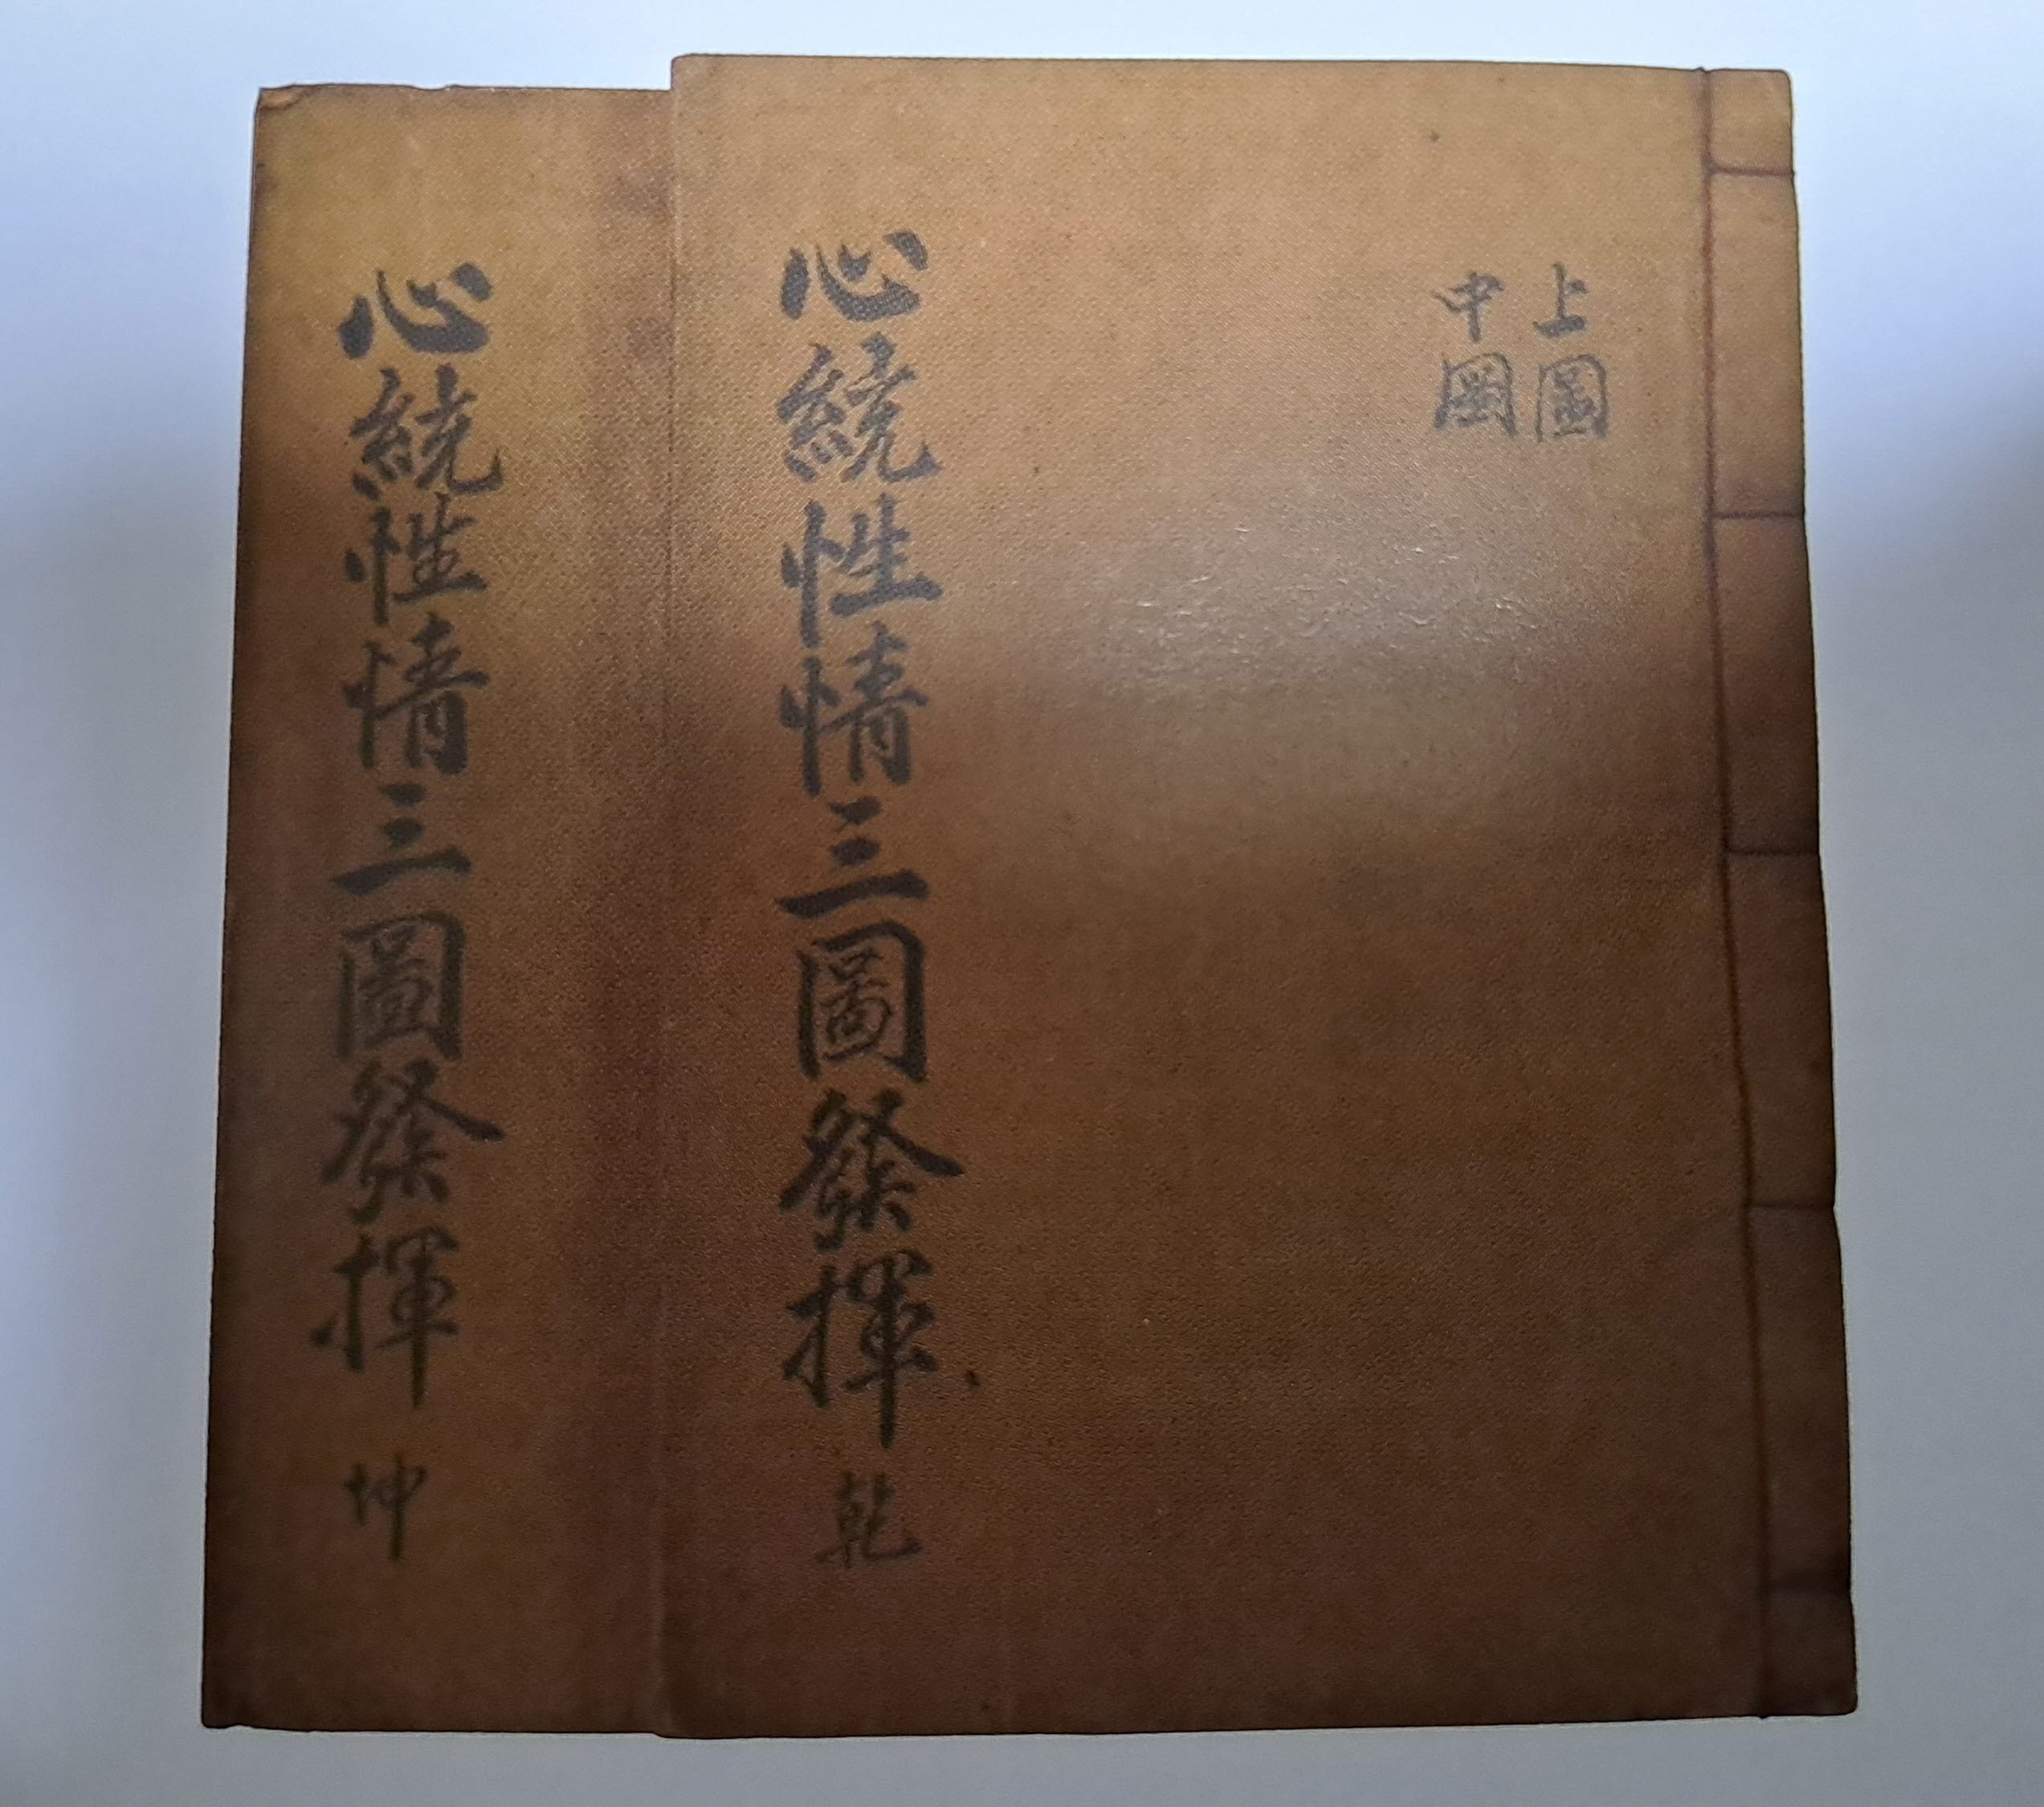 上圖
中圖
心統性情三圖發揮 乾
心統性情三圖發揮 坤